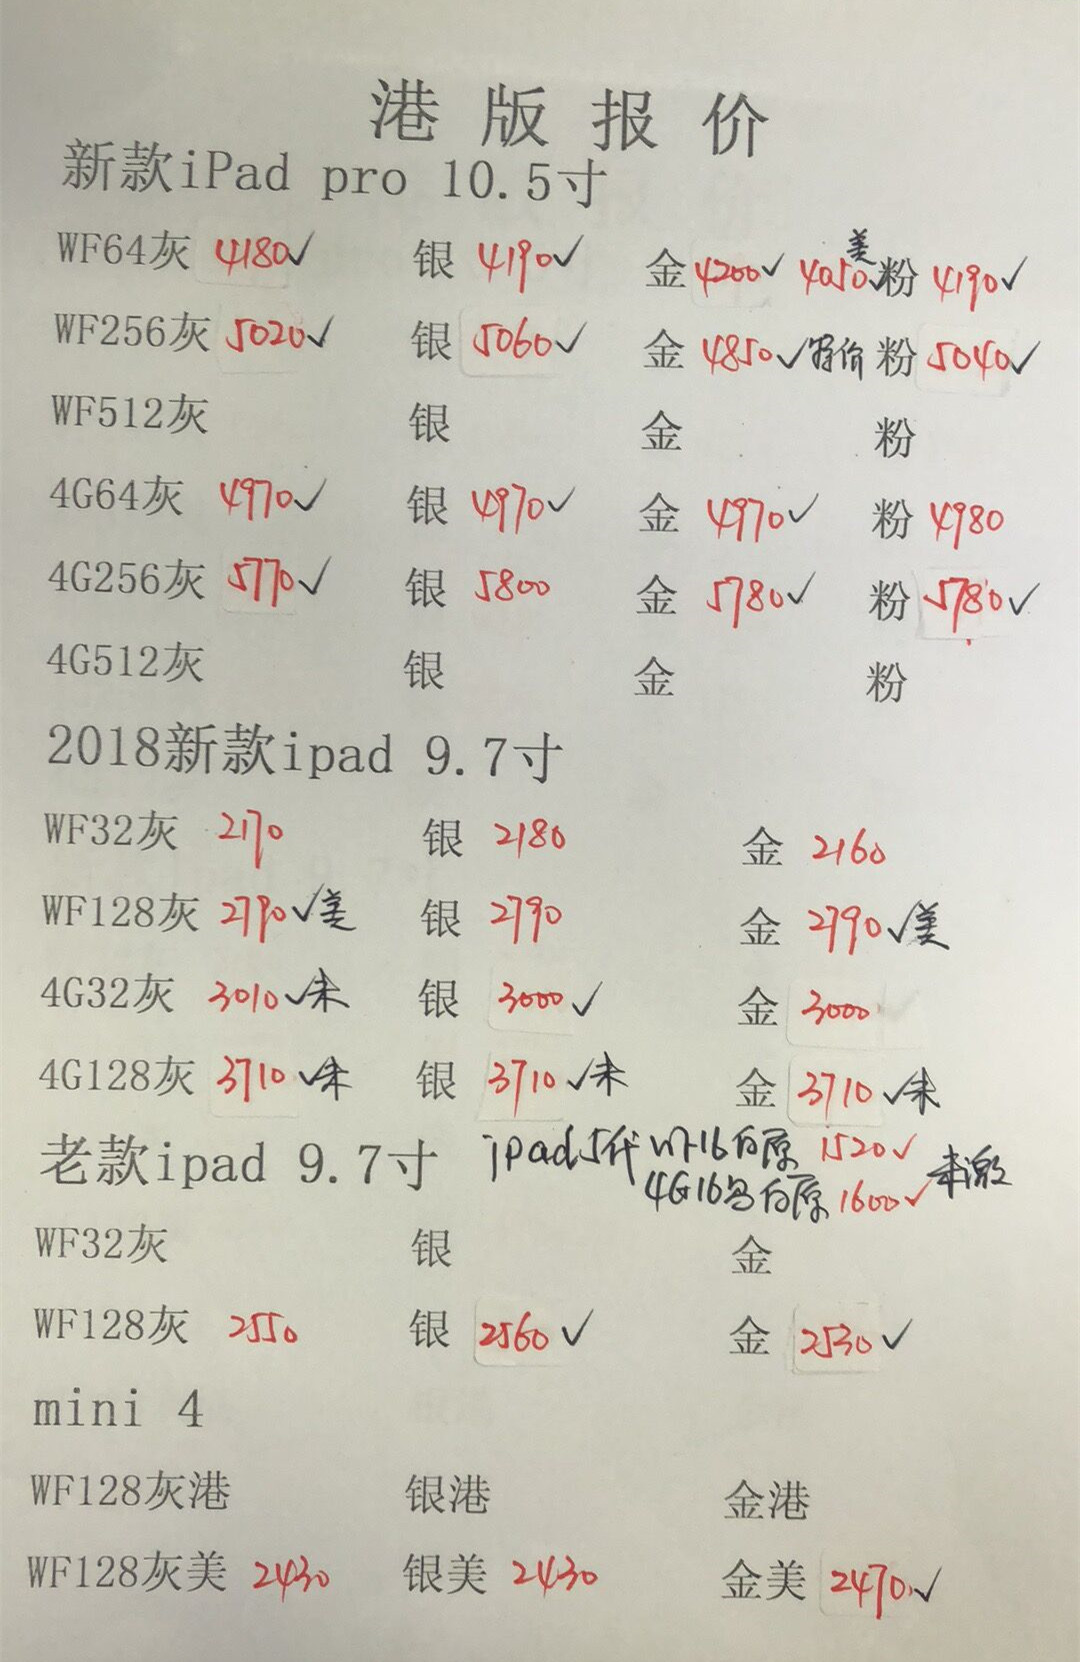 港版报价
新款iPad pro 10.5寸
WF64灰 4180✓ 银 4190✓ 金 4200✓ 4050✓美 粉 4190✓
WF256灰 5020✓ 银 5060✓ 金 4850✓特价 粉 5040✓
WF512灰 银 金 粉
4G64灰 4970✓ 银 4970✓ 金 4970✓ 粉 4980
4G256灰 5770✓ 银 5800 金 5780✓ 粉 5780✓
4G512灰 银 金 粉
2018新款ipad 9.7寸
WF32灰 2170 银 2180 金 2160
WF128灰 2790✓美 银 2790 金 2790✓美
4G32灰 3010✓未 银 3000✓ 金 3000
4G128灰 3710✓未 银 3710✓未 金 3710✓未
老款ipad 9.7寸 ipad5代 WF16白原 1520✓
4G16白原 1600✓ 未激
WF32灰 银 金
WF128灰 2550 银 2560✓ 金 2530✓
mini 4
WF128灰港 银港 金港
WF128灰美 2430 银美 2430 金美 2470✓